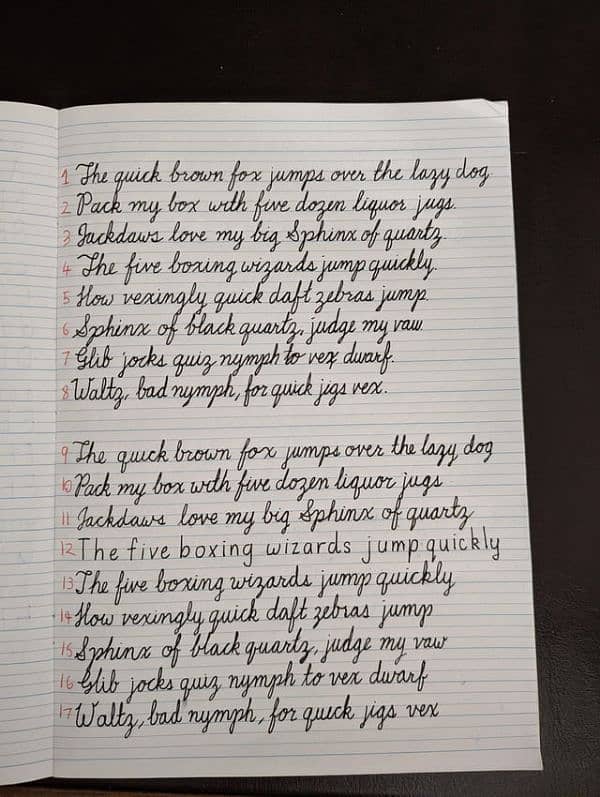 1 The quick brown fox jumps over the lazy dog.
2 Pack my box with five dozen liquor jugs.
3 Jackdaws love my big Sphinx of quartz.
4 The five boxing wizards jump quickly.
5 How vexingly quick daft zebras jump.
6 Sphinx of black quartz, judge my vaw.
7 Glib jocks quiz nymph to vex dwarf.
8 Waltz, bad nymph, for quick jigs vex.
9 The quick brown fox jumps over the lazy dog
10 Pack my box with five dozen liquor jugs
11 Jackdaws love my big Sphinx of quartz
12 The five boxing wizards jump quickly
13 The five boxing wizards jump quickly
14 How vexingly quick daft zebras jump
15 Sphinx of black quartz, judge my vaw
16 Glib jocks quiz nymph to vex dwarf
17 Waltz, bad nymph, for quick jigs vex